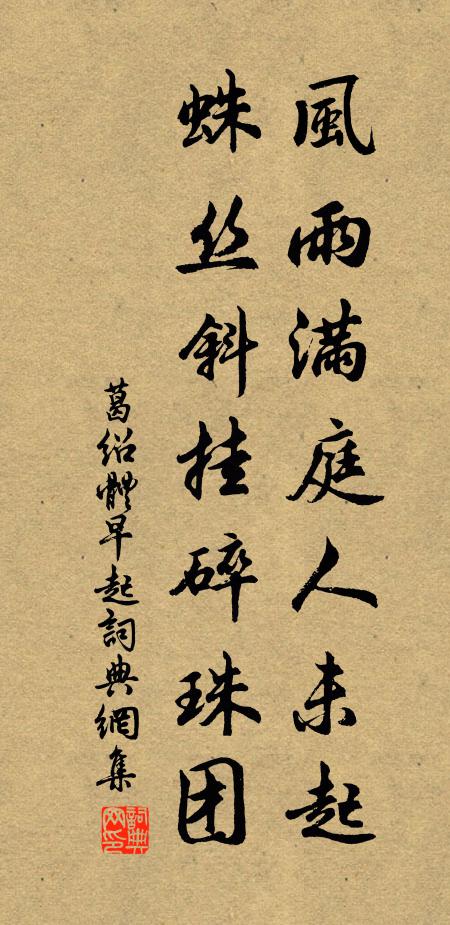 風雨滿庭人未起
蛛丝斜挂碎珠团
葛绍體早起詞典網集
詞典
网印